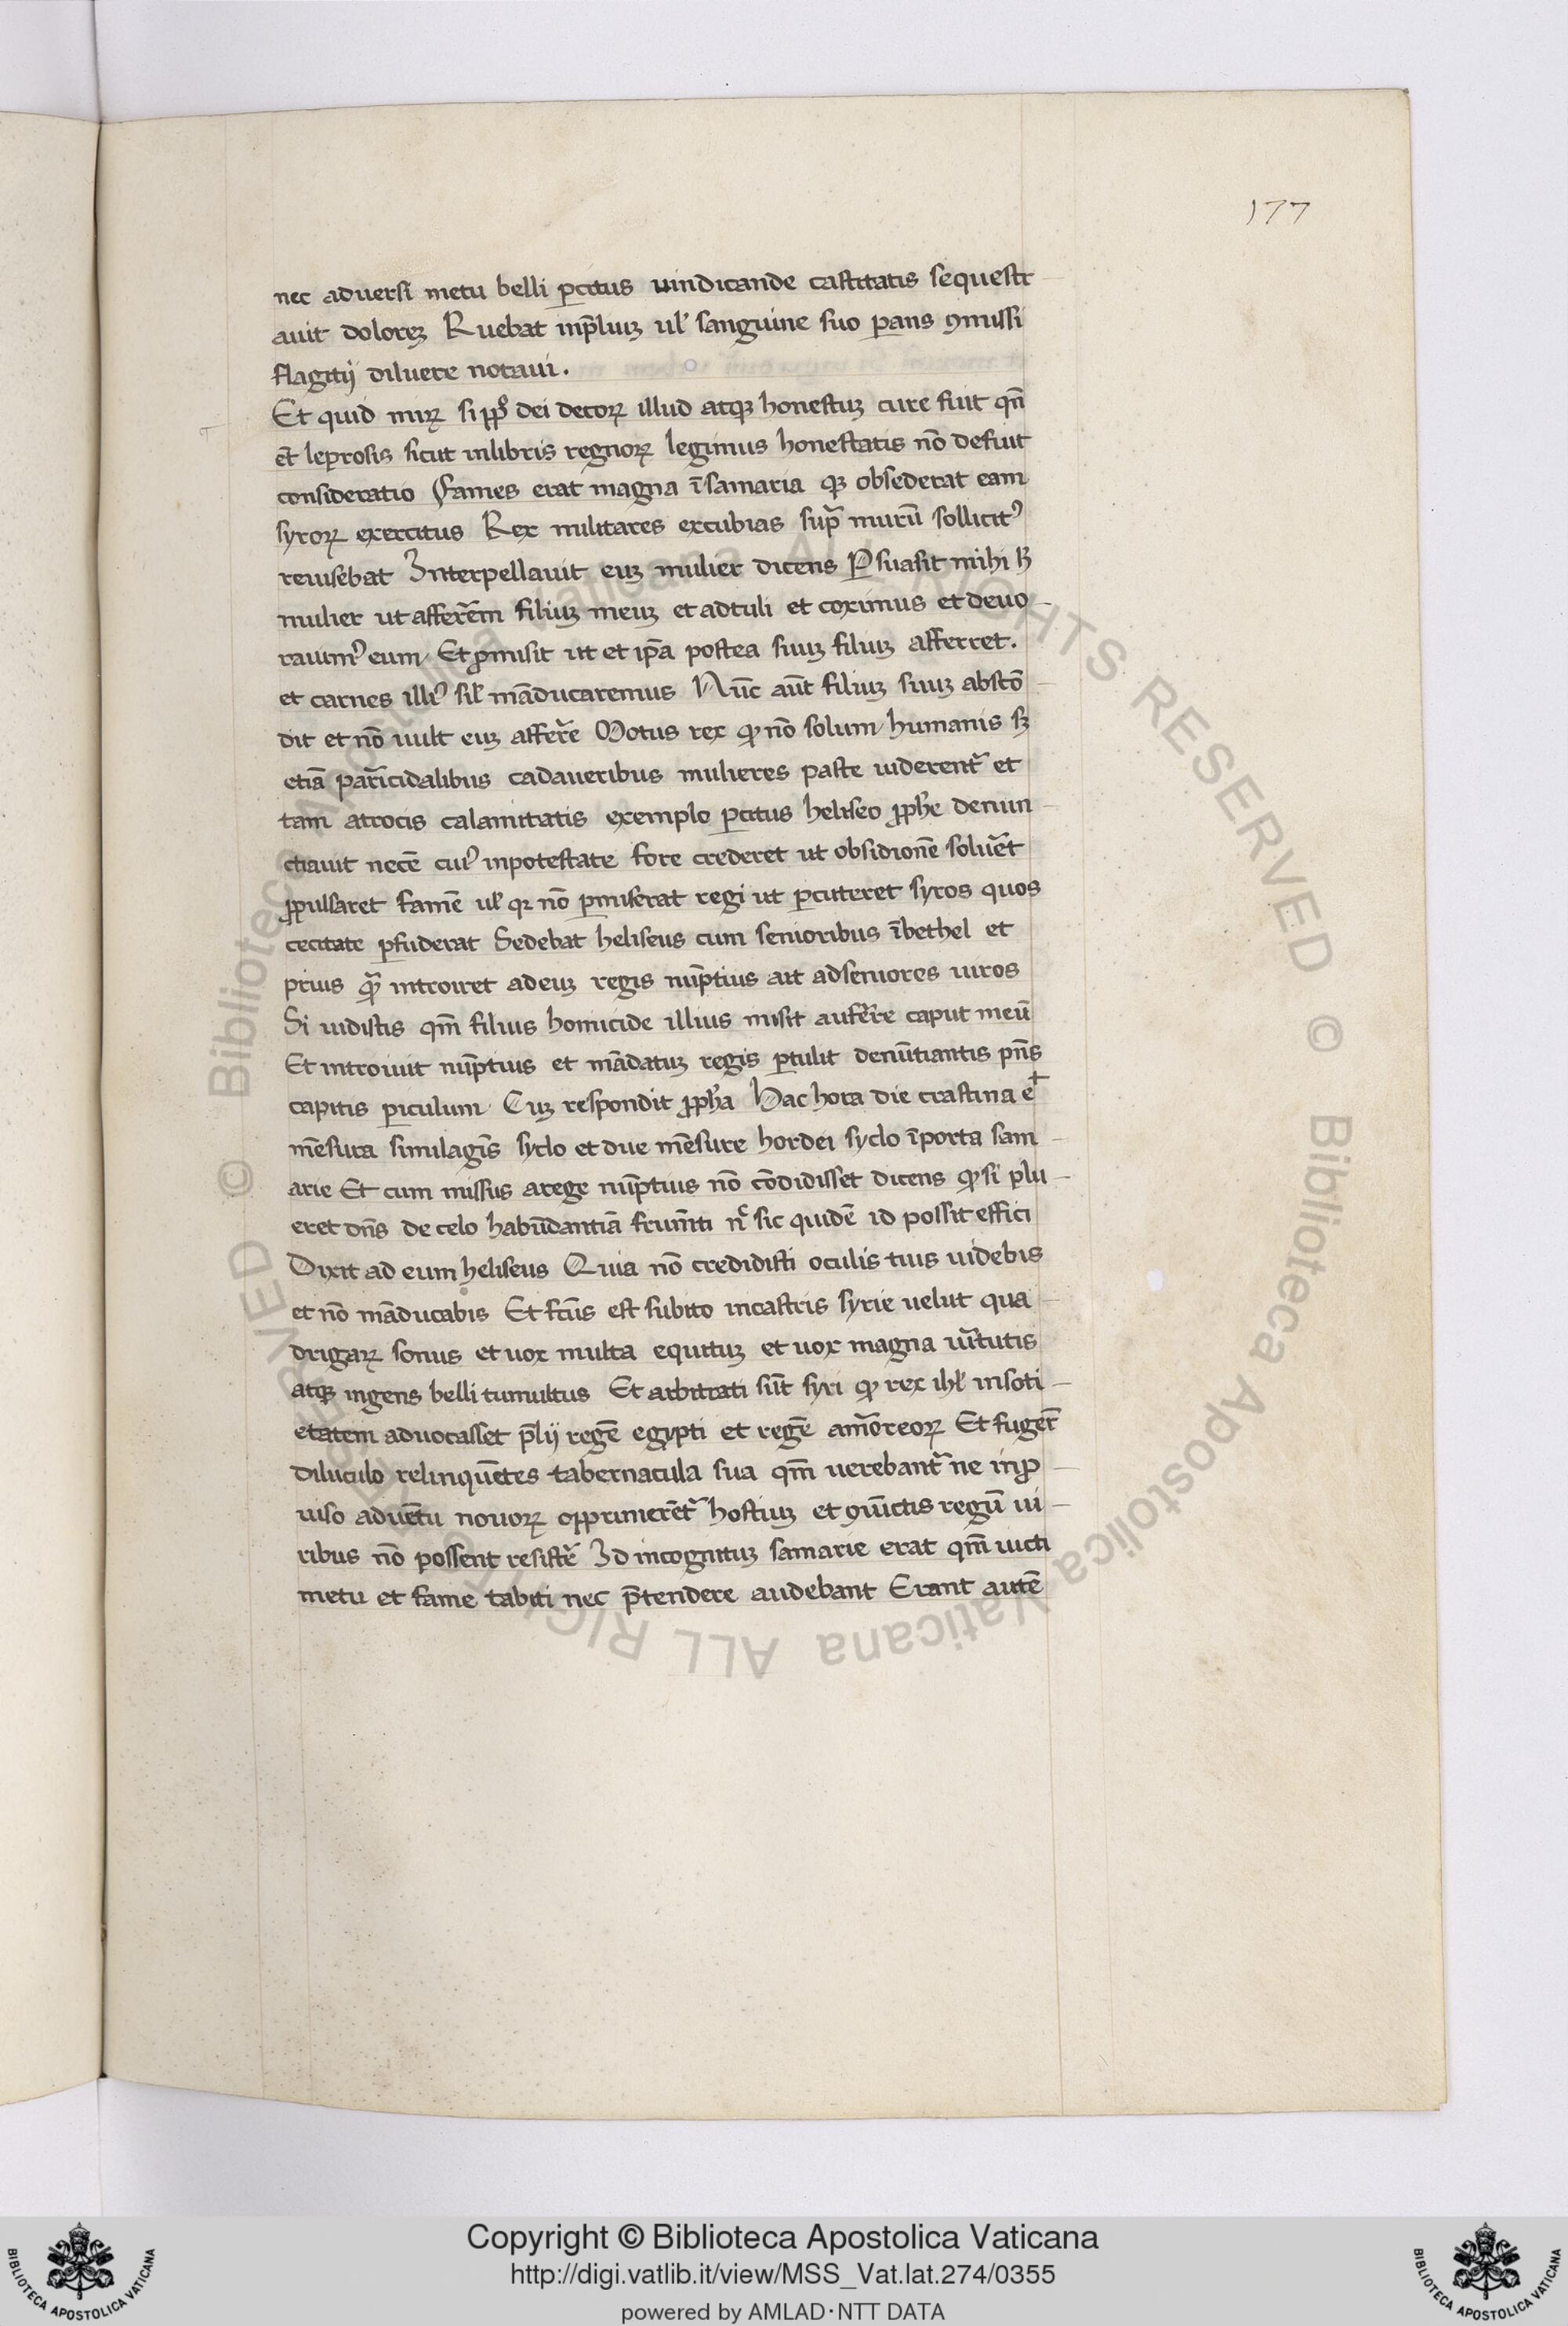 177
nec aduersi metu belli ꝑcitus uindicande castitatis sequestr
auit doloreʒ Ruebat inp̄liuʒ ul̓ sanguine suo ꝑans ꝯmissi
flagitij diluere notaui.
Et quid mirꝝ si ꝓpꝰ dei decorꝝ illud atqʒ honestuʒ cure fuit qn̄
et̄ leprosis sicut inlibris regnorꝝ legimus honestatis nō defuit
consideratio Fames erat magna ī samaria qʒ obsederat eam
syrorꝝ exercitus Rex militares excubias sup̄ murū sollicitꝰ
reuisebat Interpellauit euʒ mulier dicens Ꝑsuasit mihi hʒ
mulier ut afferrēm filiuʒ meuʒ et adtuli et coximus et deuo
rauimꝰ eum Et ꝓmisit ut et ip̄a postea suuʒ filiuʒ afferret.
et carnes illiꝰ sil̓ māducaremus Nūc aūt filiuʒ suuʒ abscō
dit et nō uult euʒ afferr̄e Motus rex ꝙ nō solum humanis sʒ
etiā parr̄icidalibus cadaueribus mulieres paste uiderent̄ et
tam atrocis calamitatis exemplo ꝑcitus heliseo ꝓph̄e denun
ctiauit necē cuiꝰ inpotestate fore crederet ut obsidionē soluēt
ꝓpulsaret famē ul̓ qꝛ nō ꝑmiserat regi ut ꝑcuteret syros quos
cecitate ꝑfuderat Sedebat heliseus cum senioribus ī bethel et
prius ꝙ̄ introiret adeuʒ regis nūptius ait adseniores uiros
Si uidistis qm̄ filius homicide illius misit auferr̄e caput meū
Et introiuit nūptius et mādatuʒ regis ꝑtulit denūtiantis pn̄s
capitis ꝑiculum Cuʒ respondit ꝓph̄a Hac hora die crastina e+
mēsura similagīs syclo et due mēsure hordei syclo ī porta sam
arie Et cum missus arege nūptius nō cōdidisset dicens ꝙ si plu
eret dn̄s de celo habūdantiā frum̄ti nͨ sic quidē id possit effici
Dixit ad eum heliseus Quia nō credidisti oculis tuis uidebis
et nō māducabis Et fcūs est subito incastris syrie uelut qua
drigarꝝ sonus et uox multa equituʒ et uox magna uir̄tutis
atqʒ ingens belli tumultus Et arbitrati sūt syri ꝙ rex ihl̓ insoti
etatem aduocasset p̄lij regē egypti et regē am̄oreorꝝ Et fuger̄t
diluculo relinquētes tabernacula sua qm̄ uerebant̄ ne inꝓ
uiso aduētu nouorꝝ opprimerēt̄ hostiuʒ et ꝯiūctis regū ui
ribus nō possent resister̄ Id incognituʒ samarie erat qm̄ uicti
metu et fame tabiti nec p̄tendere audebant Erant autē
Copyright © Biblioteca Apostolica Vaticana
http://digi.vatlib.it/view/MSS_Vat.lat.274/0355
powered by AMLAD·NTT DATA
BIBLIOTECA APOSTOLICA VATICANA
BIBLIOTECA APOSTOLICA VATICANA
© Biblioteca Apostolica Vaticana ALL RIGHTS RESERVED © Biblioteca Apostolica Vaticana ALL RIGHTS RESERVED